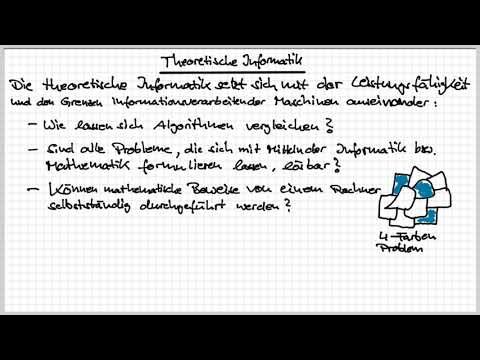 Theoretische Informatik
Die theoretische Informatik setzt sich mit der Leistungsfähigkeit
und den Grenzen informationsverarbeitender Maschinen auseinander:
- Wie lassen sich Algorithmen vergleichen?
- Sind alle Probleme, die sich mit Mitteln der Informatik bzw.
Mathematik formulieren lassen, lösbar?
- Können mathematische Beweise von einem Rechner
selbstständig durchgeführt werden?
4-Farben
Problem